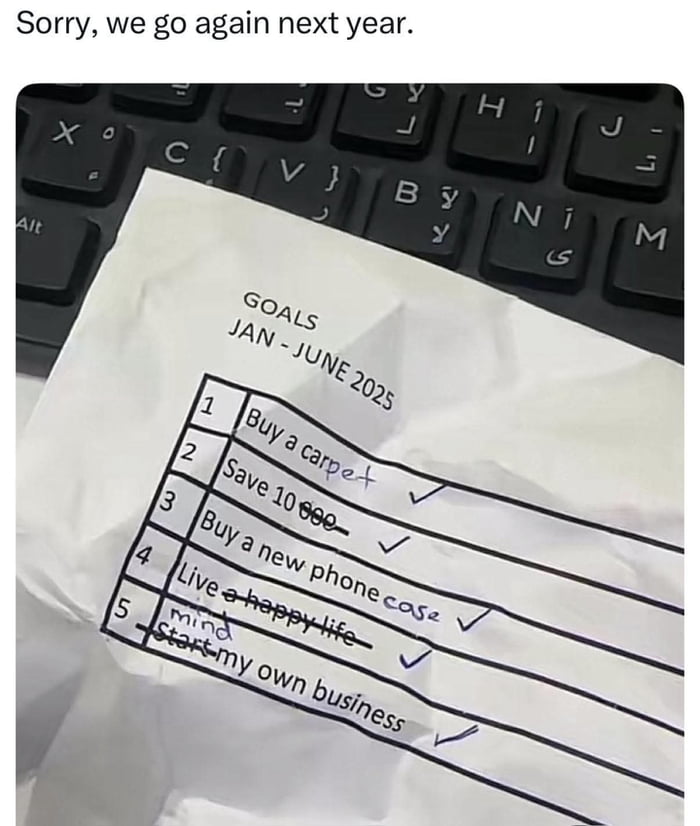 Sorry, we go again next year.
G H أ J ـ
ا
X C { V } B لآ N آ M
ر لا ى
Alt
GOALS
JAN - JUNE 2025
1 Buy a carpet ✓
2 Save 10 000 ✓
3 Buy a new phone case ✓
4 Live a happy life ✓
mind
5 Start my own business ✓